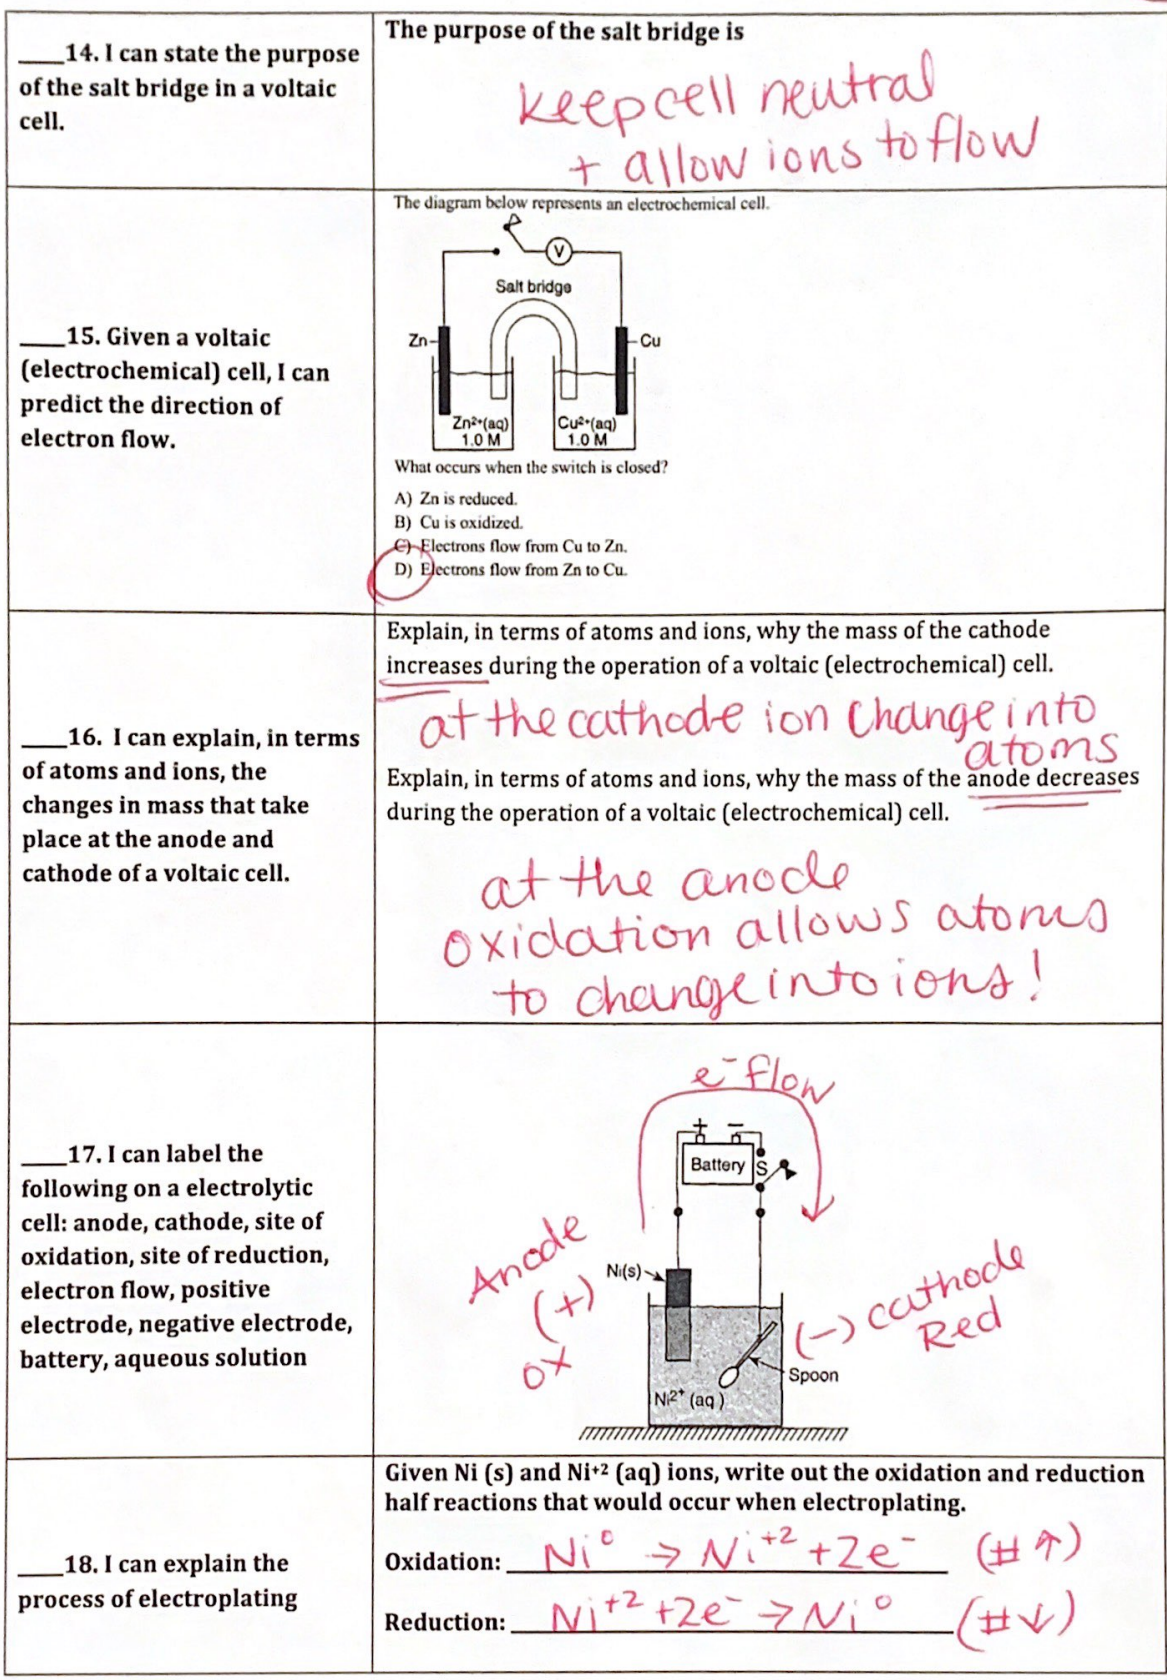 ___14. I can state the purpose
of the salt bridge in a voltaic
cell.
The purpose of the salt bridge is
keep cell neutral
+ allow ions to flow
___15. Given a voltaic
(electrochemical) cell, I can
predict the direction of
electron flow.
The diagram below represents an electrochemical cell.
V
Salt bridge
Zn
Cu
Zn²⁺(aq)
1.0 M
Cu²⁺(aq)
1.0 M
What occurs when the switch is closed?
A) Zn is reduced.
B) Cu is oxidized.
C) Electrons flow from Cu to Zn.
D) Electrons flow from Zn to Cu.
___16. I can explain, in terms
of atoms and ions, the
changes in mass that take
place at the anode and
cathode of a voltaic cell.
Explain, in terms of atoms and ions, why the mass of the cathode
increases during the operation of a voltaic (electrochemical) cell.
at the cathode ion change into
atoms
Explain, in terms of atoms and ions, why the mass of the anode decreases
during the operation of a voltaic (electrochemical) cell.
at the anode
oxidation allows atoms
to change into ions!
___17. I can label the
following on a electrolytic
cell: anode, cathode, site of
oxidation, site of reduction,
electron flow, positive
electrode, negative electrode,
battery, aqueous solution
e⁻ flow
+ −
Battery
S
Anode
(+)
ox
Ni(s)
(−) cathode
Red
Spoon
Ni²⁺ (aq)
___18. I can explain the
process of electroplating
Given Ni (s) and Ni⁺² (aq) ions, write out the oxidation and reduction
half reactions that would occur when electroplating.
Oxidation: Ni⁰ → Ni⁺² + 2e⁻ (# ↑)
Reduction: Ni⁺² + 2e⁻ → Ni⁰ (# ↓)